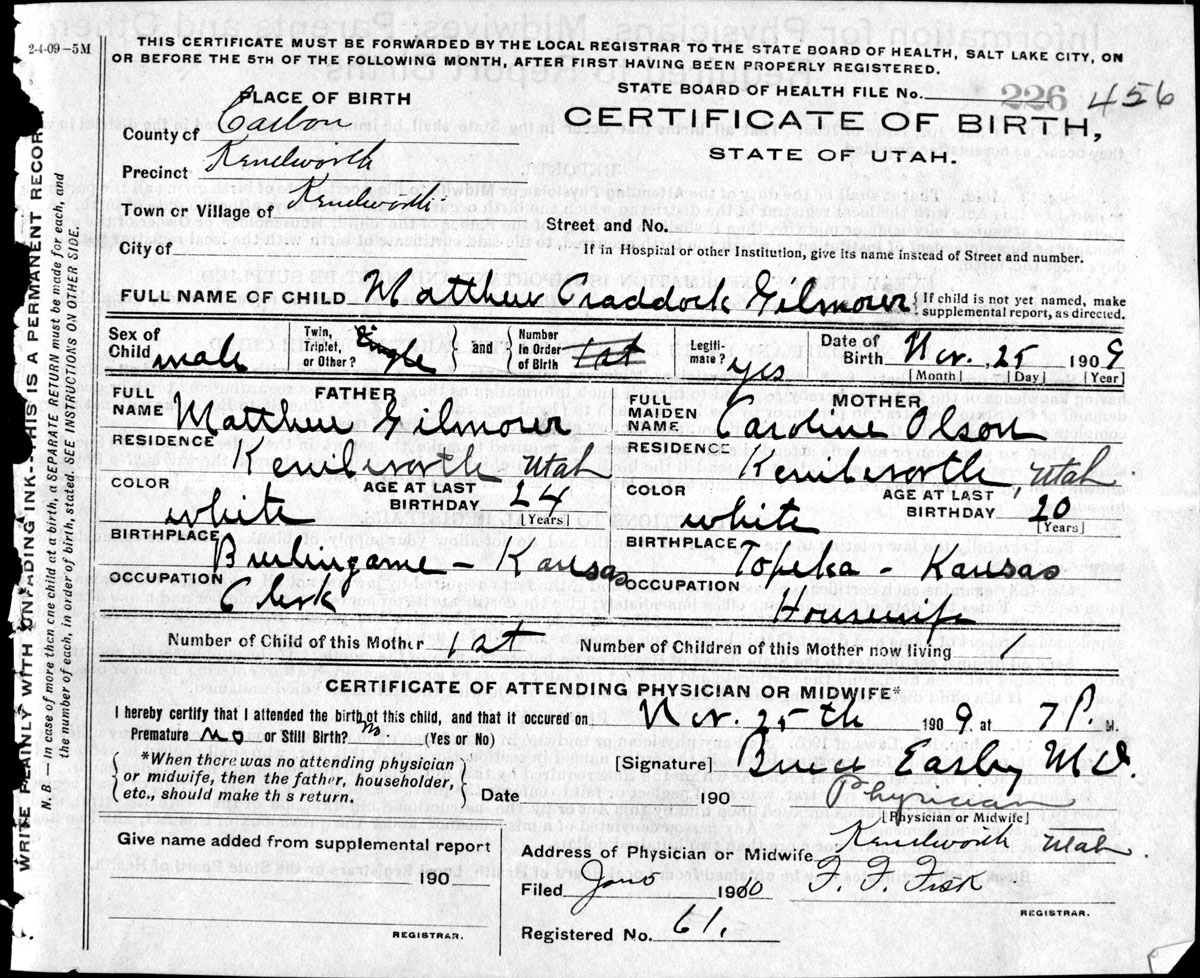 2-4-09-5M
THIS CERTIFICATE MUST BE FORWARDED BY THE LOCAL REGISTRAR TO THE STATE BOARD OF HEALTH, SALT LAKE CITY, ON
OR BEFORE THE 5TH OF THE FOLLOWING MONTH, AFTER FIRST HAVING BEEN PROPERLY REGISTERED.
STATE BOARD OF HEALTH FILE No. 226 456
PLACE OF BIRTH
CERTIFICATE OF BIRTH,
STATE OF UTAH.
County of Carbon
Precinct Kenilworth
Town or Village of Kenilworth
Street and No.
City of
If in Hospital or other Institution, give its name instead of Street and number.
FULL NAME OF CHILD Matthew Craddock Gilmour { If child is not yet named, make
supplemental report, as directed.
Sex of Child male
Twin, Triplet, or Other? Single } and { Number in Order of Birth 1st
Legiti-mate? yes
Date of Birth Nov. 25 1909
[Month] [Day] [Year]
FATHER
FULL NAME Matthew Gilmour
MOTHER
FULL MAIDEN NAME Caroline Olson
RESIDENCE Kenilworth Utah
RESIDENCE Kenilworth, Utah
COLOR white
AGE AT LAST BIRTHDAY 24 [Years]
COLOR white
AGE AT LAST BIRTHDAY 20 [Years]
BIRTHPLACE Burlingame - Kansas
BIRTHPLACE Topeka - Kansas
OCCUPATION Clerk
OCCUPATION Housewife
Number of Child of this Mother 1st
Number of Children of this Mother now living 1
CERTIFICATE OF ATTENDING PHYSICIAN OR MIDWIFE*
I hereby certify that I attended the birth of this child, and that it occured on Nov. 25th 1909 at 7 P. M.
Premature no or Still Birth? No. (Yes or No)
*When there was no attending physician
or midwife, then the father, householder,
etc., should make th s return.
[Signature] Bruce Easley M.D.
Date 190
Physician
[Physician or Midwife]
Give name added from supplemental report
190
REGISTRAR.
Address of Physician or Midwife Kenilworth Utah
Filed 1910 F. F. Fisk
REGISTRAR.
Registered No. 61.
WRITE PLAINLY WITH UNFADING INK--THIS IS A PERMANENT RECORD
N. B. — In case of more than one child at a birth, a SEPARATE RETURN must be made for each, and
the number of each, in order of birth, stated. SEE INSTRUCTIONS ON OTHER SIDE.